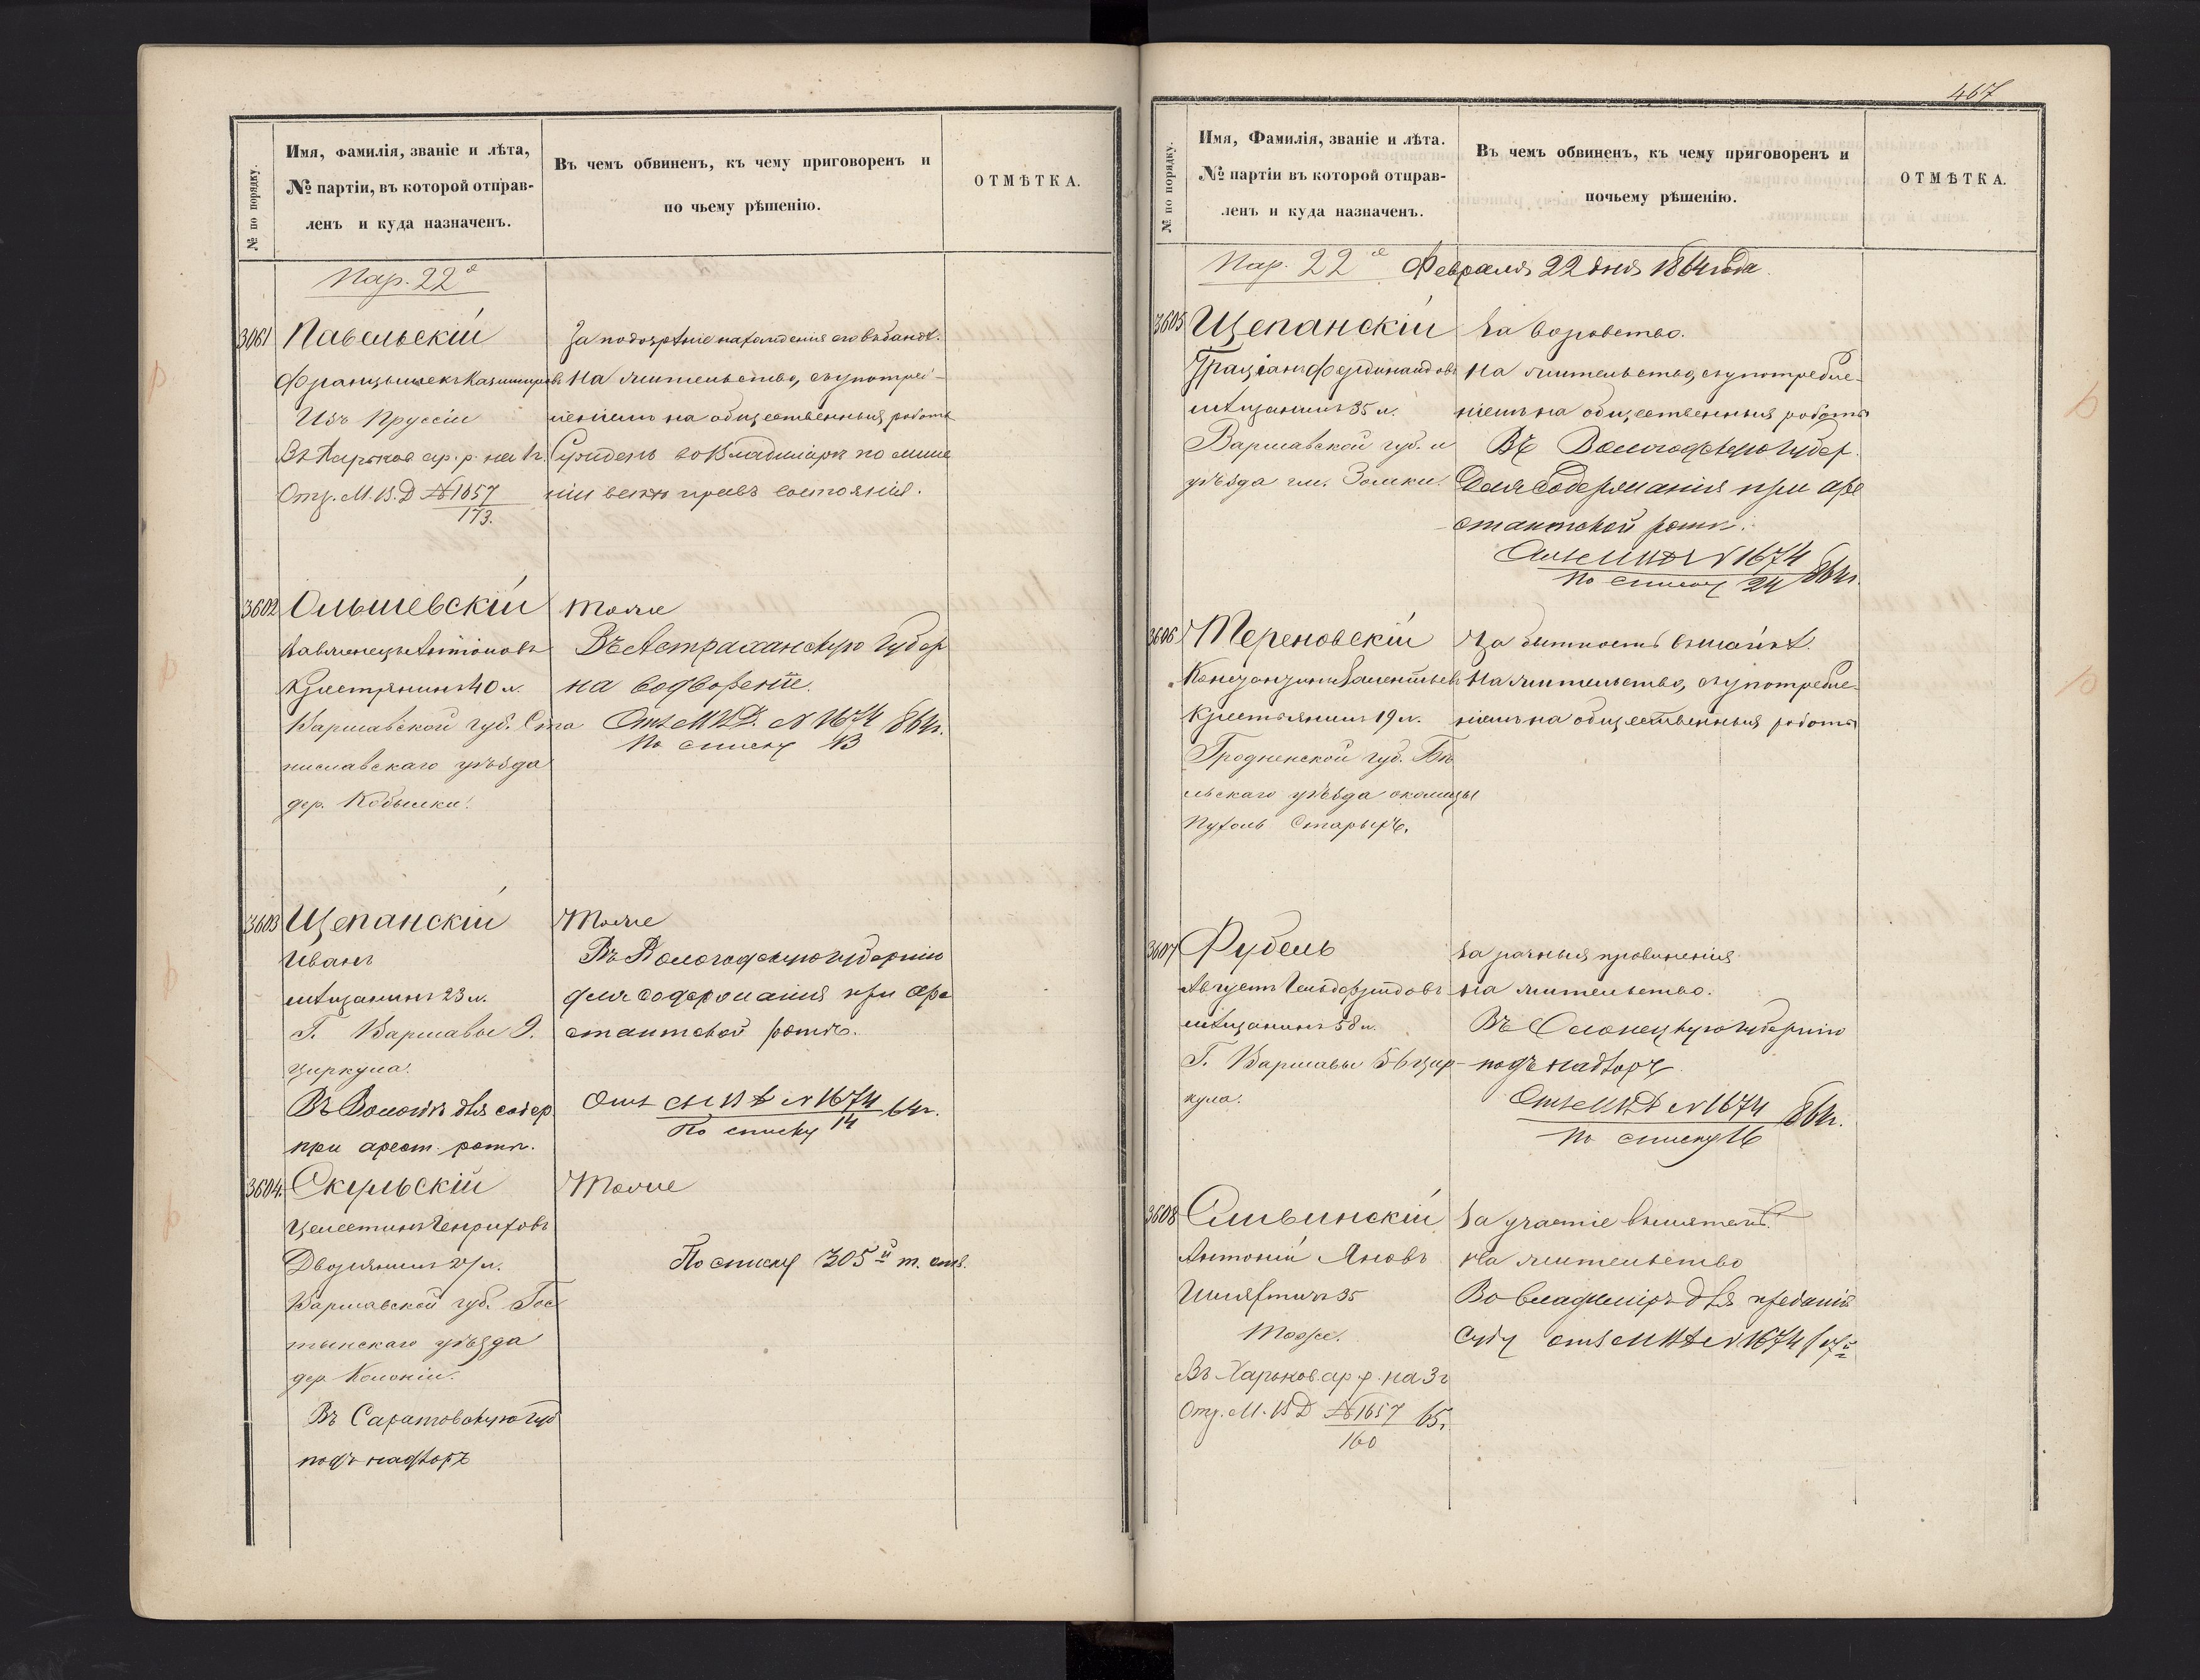 № по порядку.
Имя, фамилія, званіе и лѣта,
№ партіи, въ которой отправ-
ленъ и куда назначенъ.
Въ чемъ обвиненъ, къ чему приговоренъ и
по чьему рѣшенію.
ОТМѢТКА.
Пар. 22ª
3061
Павельскій
Францышекъ Казимировъ
Изъ Пруссіи
Въ Харьков. ар. р. на 1 г.
Отз. М. В. Д. №1657
173.
За подозрѣніе нахожденія его въ бандѣ.
На жительство, съ употреб-
леніемъ на общественныя работы
Сужденъ во Владимірѣ по лише
ніи всѣхъ правъ состоянія.
3602
Ольшевскій
Вавженецъ Антоновъ
Крестьянинъ 40 л.
Варшавской губ. Ста
ниславскаго уѣзда
дер. Кобылки.
Тоже
Въ Астраханскую Губер
на водвореніе.
Отз. М.В.Д. № 1674 864 г.
По списку 13
3603
Щепанскій
Иванъ
мѣщанинъ 23 л.
Г. Варшавы 9.
циркула.
Въ Вологдѣ для содер.
при арест. ротѣ.
Тоже
Въ Вологодскую губернію
для содержанія при Аре
стантской ротѣ.
Отз М В Д № 1674 64 г.
По списку 14
3604.
Скурьскій
Целестинъ Генриховъ
Дворянинъ 27 л.
Варшавской губ. Гос
тынскаго уѣзда
дер. Колоніи.
Въ Саратовскую губ
подъ надзоръ
Тоже
По списку 305й т. ств.
467
№ по порядку.
Имя, Фамилія, званіе и лѣта.
№ партіи въ которой отправ-
ленъ и куда назначенъ.
Въ чемъ обвиненъ, къ чему приговоренъ и
почьему рѣшенію.
ОТМѢТКА.
Пар. 22ª Февраля 22 дня 1864 года.
3605
Щепанскій
Граціанъ Фердинандовъ
мѣщанинъ 35 л.
Варшавской губ. и
уѣзда гм. Зомки.
За воровство.
На жительство, съ употребле-
ніемъ на общественныя работы
Въ Вологодскую губер.
Для содержанія при аре
стантской ротѣ.
Отз М В Д № 1674 864 г.
По списку 24
3606
Тереновскій
Констанцинъ Валентьевъ
Крестьянинъ 19 л.
Гродненской губ. Бѣ
льскаго уѣзда околицы
Пухолъ Старыхъ.
За бытность въ шайкѣ.
На жительство, съ употребле-
ніемъ на общественныя работы
3607
Рубель
Августъ Гельдфридовъ
мѣщанинъ 58 л.
Г. Варшавы 5 6 цир-
кула.
За разныя провиненія
На жительство.
Въ Олонецкую губернію
подъ надзоръ
Отз М В Д № 1674 864 г.
По списку 16
3608
Сливинскій
Антоній Яновъ
Шляхтичъ 35
Тоже.
Въ Харьков. ар. р. на 3 г
Отз. М. В Д №1657 65 г.
160
За участіе въ мятежѣ.
На жительство
Во Владиміръ для преданія
Суду отз М В Д № 1674